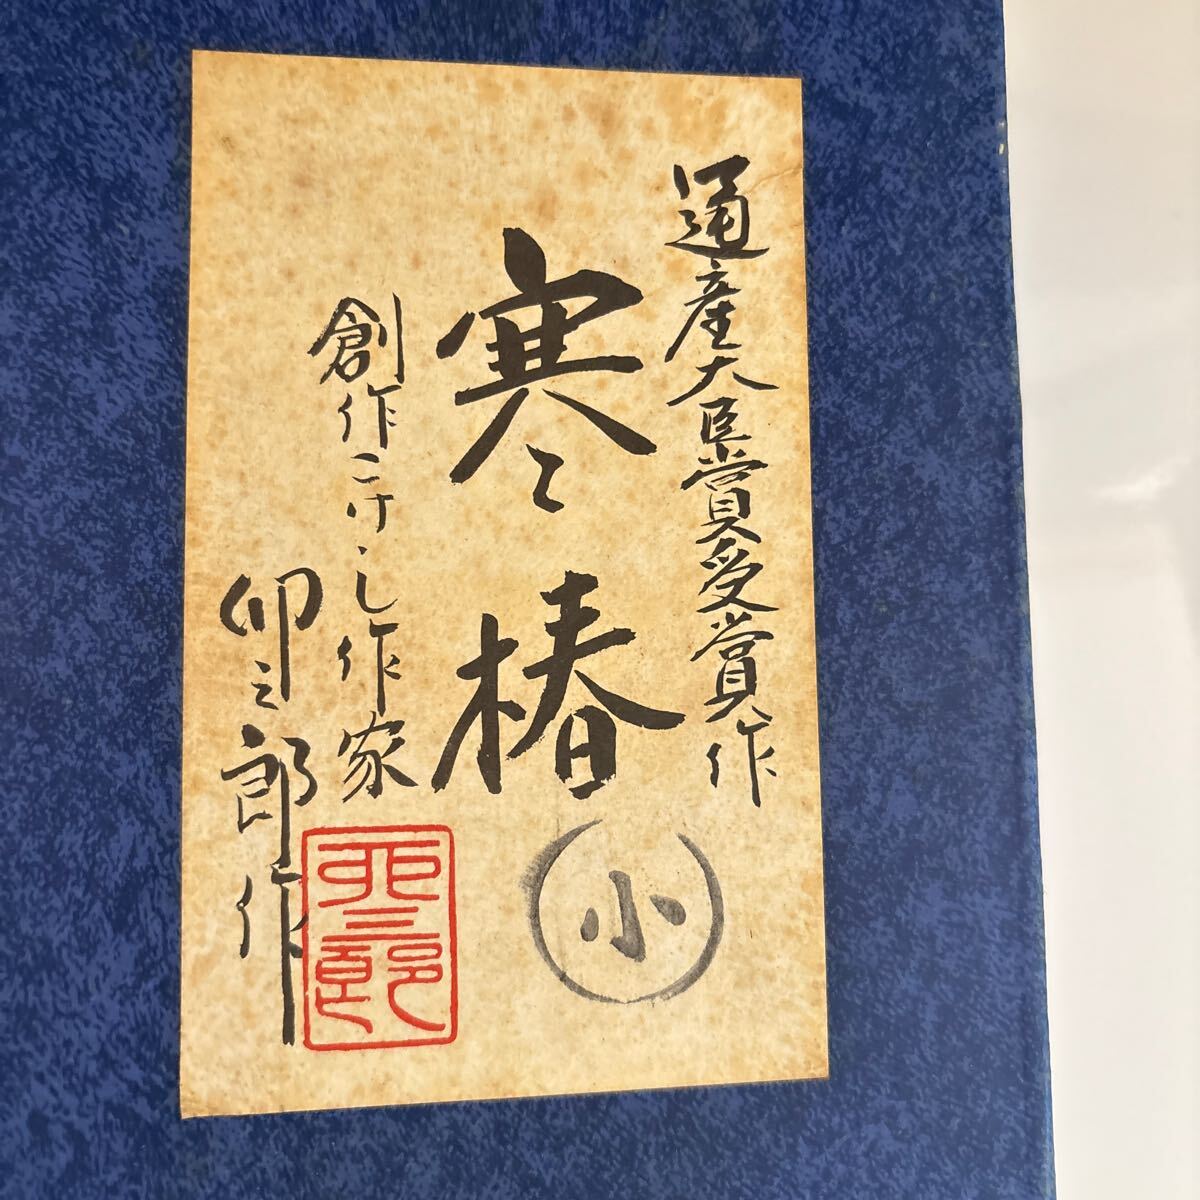 通産大臣賞受賞作
寒椿
小
創作こけし作家
卯三郎作
卯三郎